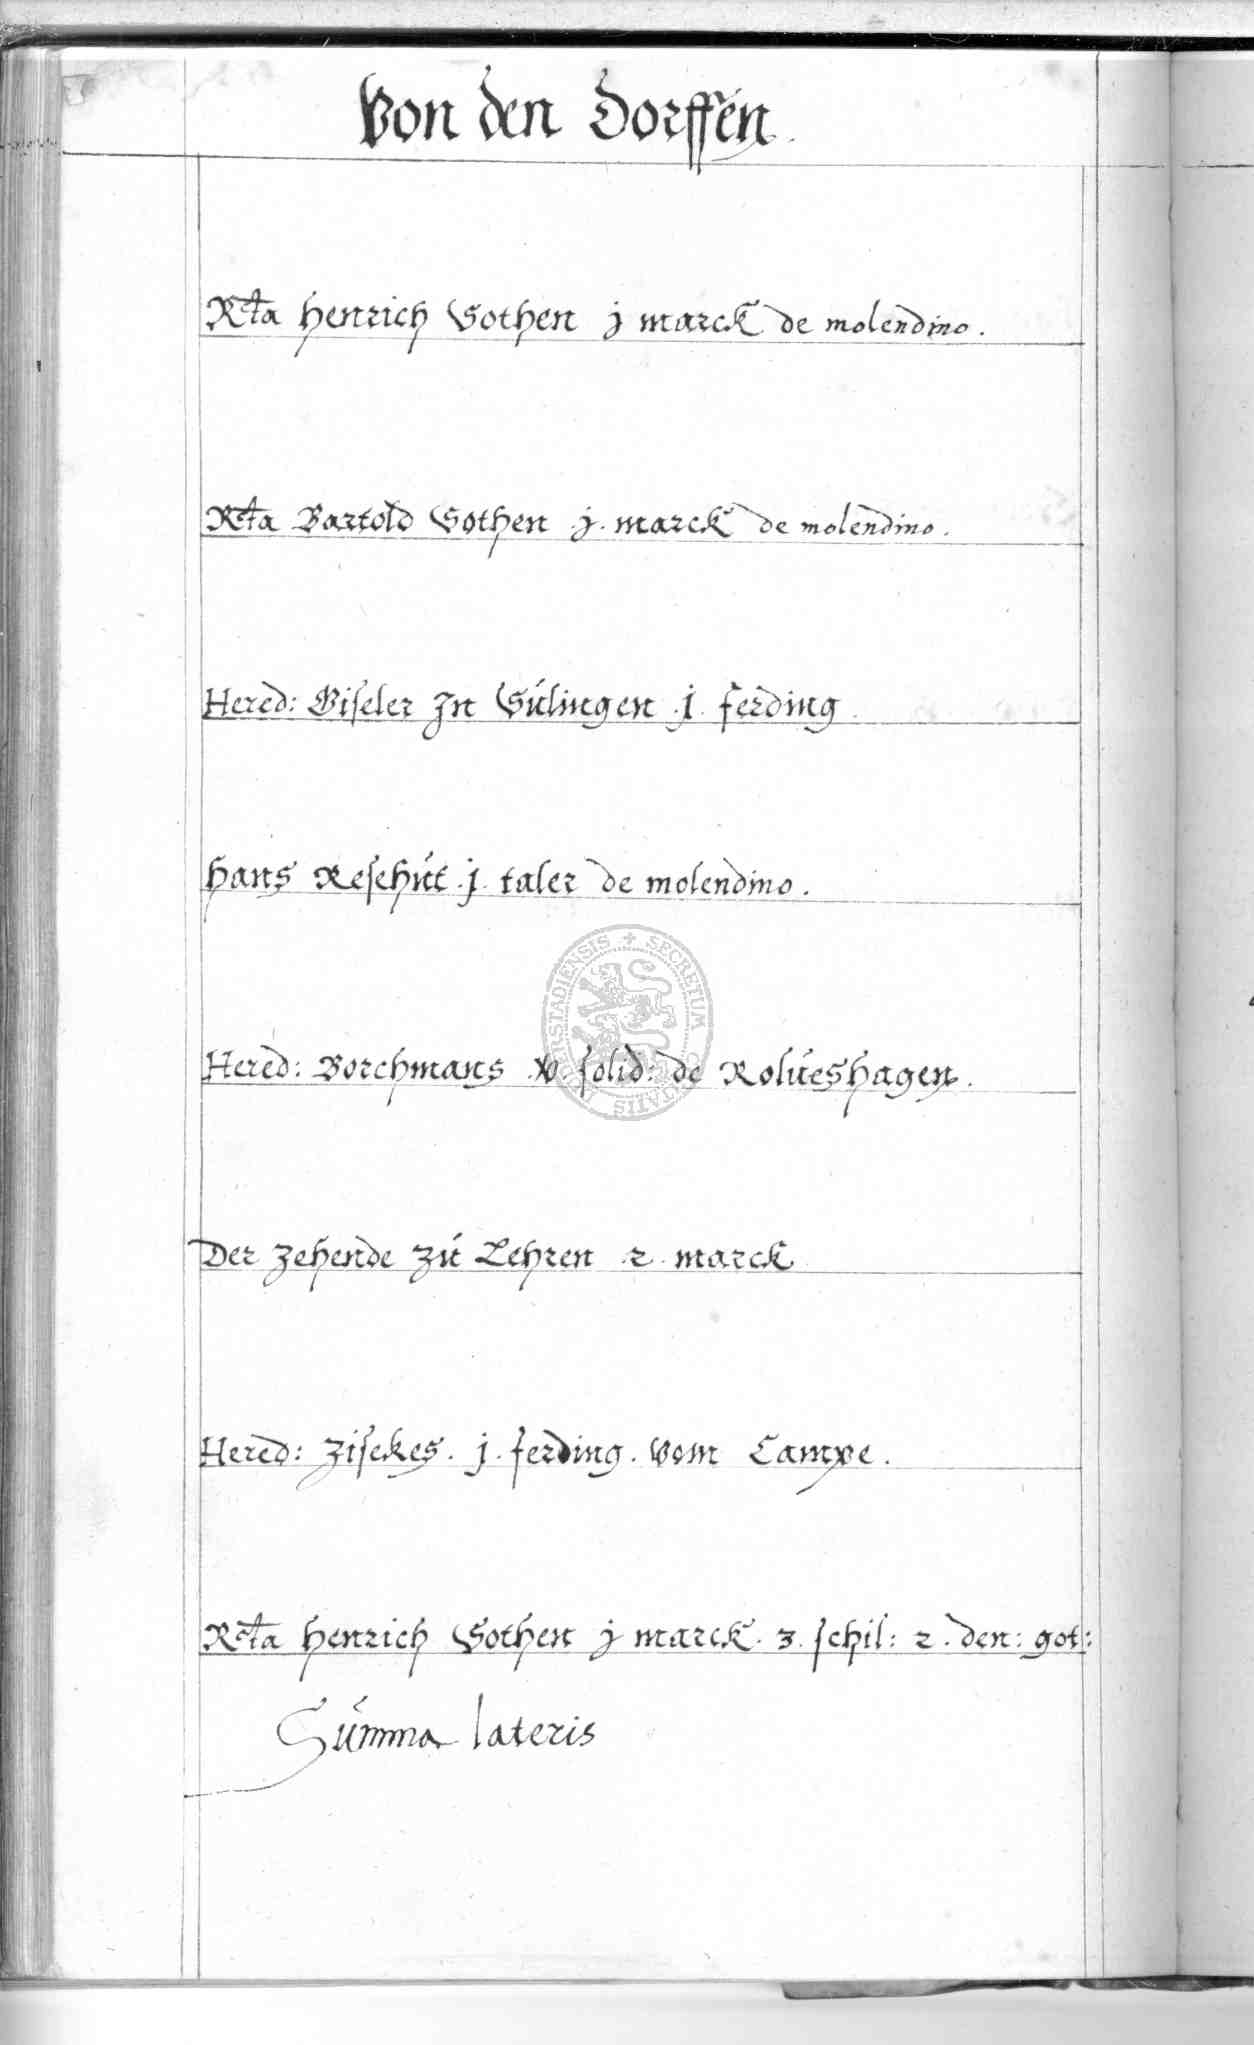 Von den Dorffen.
Rcta Henrich Gothen j marck de molendino.
Rcta Bartold Gothen .j. marck de molendino.
Hered: Giseler zu Gulingen .j. ferding.
Hans Resehut .j. taler de molendino.
SECRETUM
Hered: Borchmans .v. solid: de Rolueshagen.
Der Zehende zu Lehren .2. marck
Hered: Zisckes. j. ferding. vom Campe.
Rcta Henrich Gothen j marck. 3. schil: 2. den: got:
Summa lateris